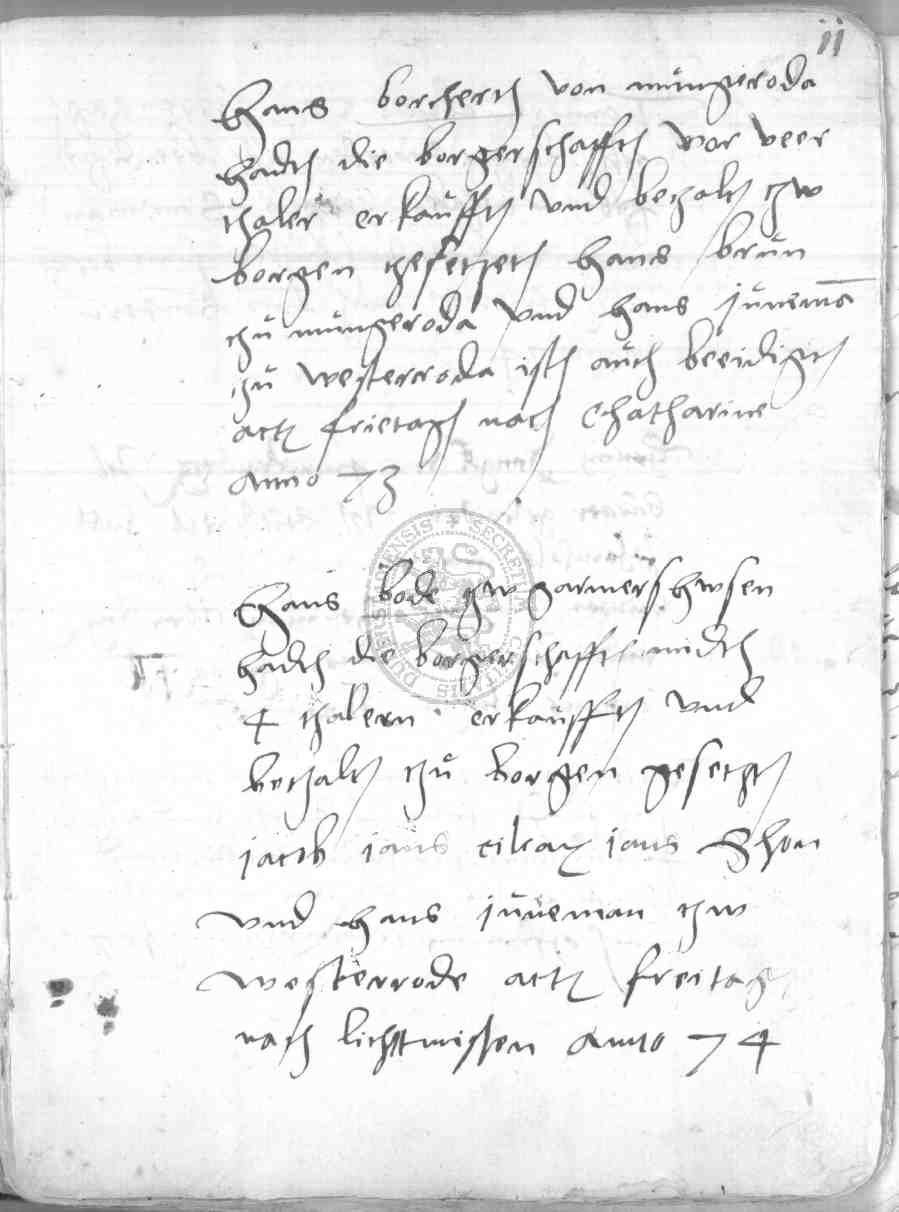 11
Hans borcherth von müngeroda
hadth die borgerschafft vor veer
thaler erkaufft vnd bezalt zw
borgen gesetzeth hans brün
zu müngeroda vnd hans jünemā
zu westerroda isth auch beeidigt
act frietagh nach Chatharine
anno 73
Hans bode zw garmershwsen
hadth die borgerschafft midth
4 thalern erkaufft vnd
betzalt tzu borgen gesetzt
jacob jans cilrax jans Shon
vnd hans jüneman tzw
westerrode act freitag
nach lichtmissen anno 74
SECRETUM CIVITATIS DUDERSTADENSIS